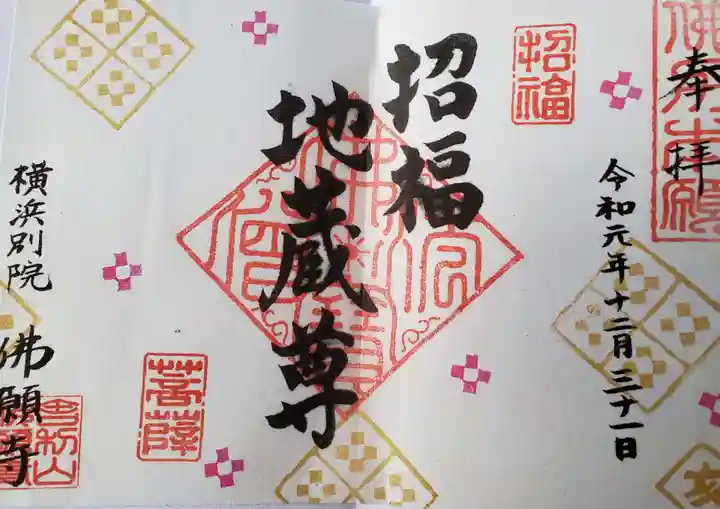 奉拝
令和元年十二月三十一日
招福
招福
地蔵尊
菩薩
横浜別院
佛願寺